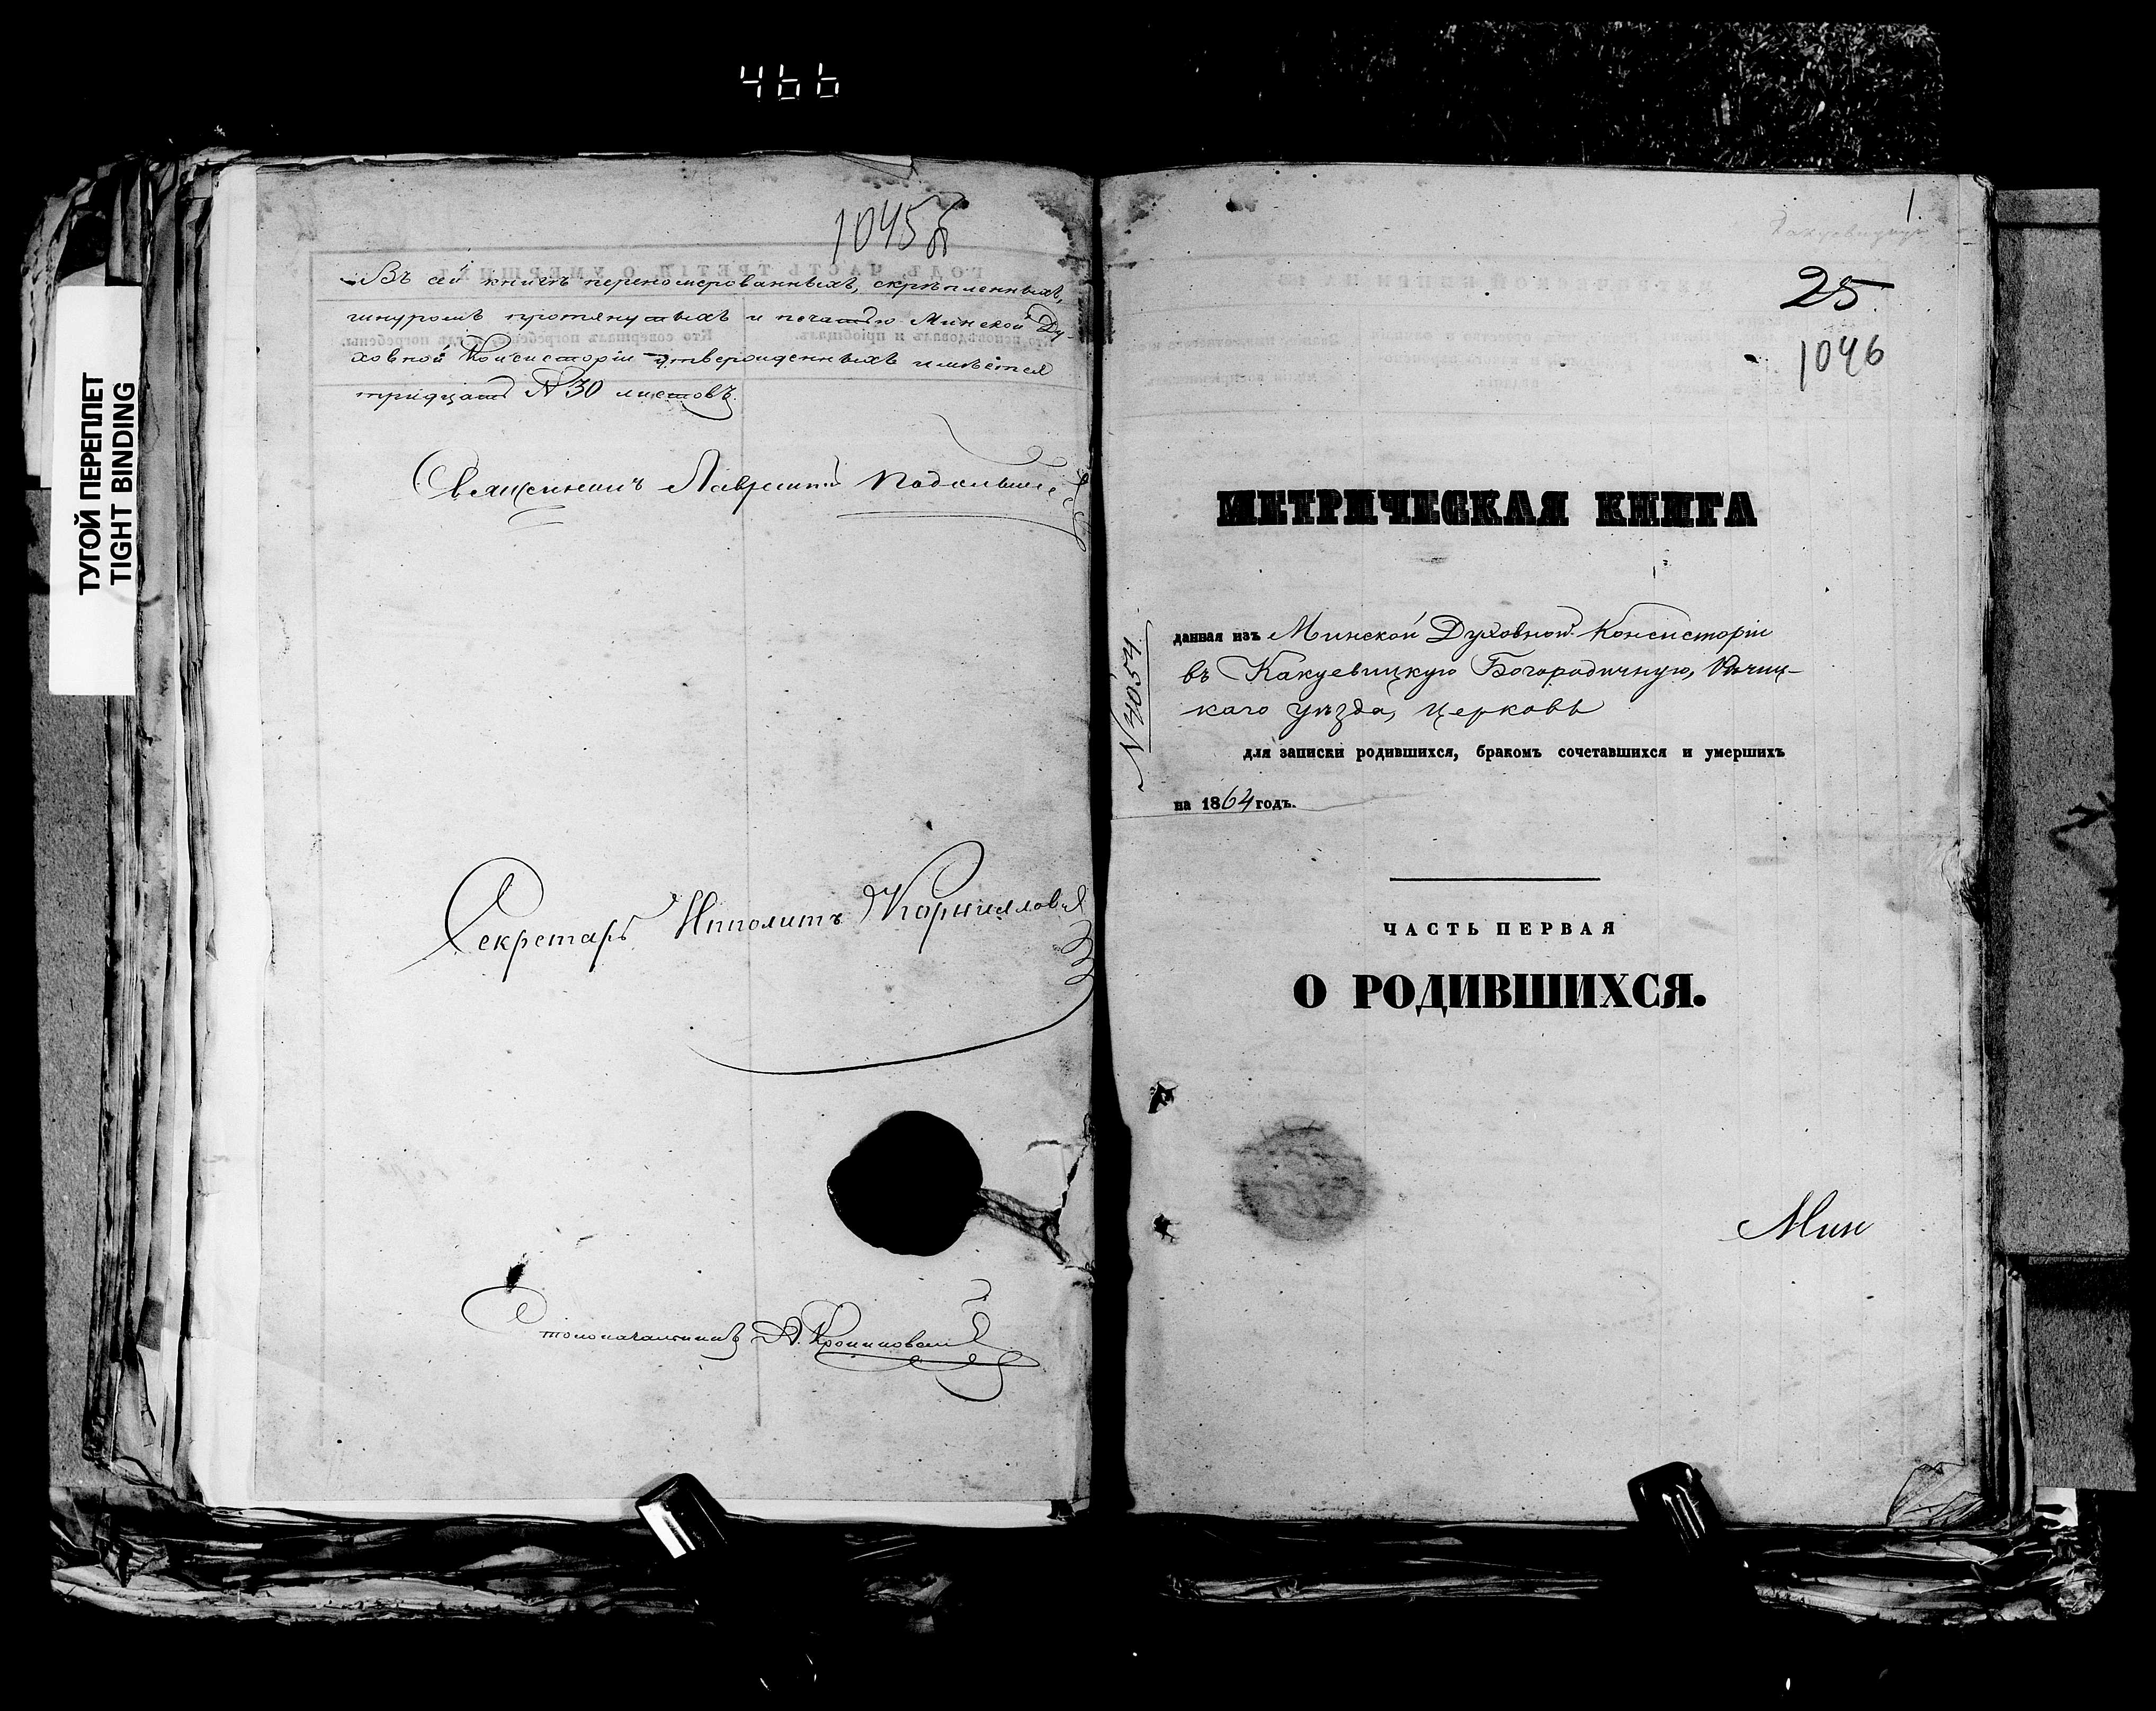 466
ТУГОЙ ПЕРЕПЛЕТ
TIGHT BINDING
1045б
Въ сей книгѣ перенумерованныхъ, скрѣпленныхъ,
шнуромъ протянутыхъ и печатью Минской Ду-
ховной Консисторіи утвержденныхъ имѣется
тридцать №30 листовъ.
Священникъ Лаврентій
Секретарь Ипполитъ Корниловъ
Столоначальникъ А.
1.
25.
1046
МЕТРИЧЕСКАЯ КНИГА
№ 4054
данная изъ Минской Духовной Консисторіи
въ Какуевицкую Богородичную, Рѣчиц-
каго уѣзда, церковь
для записки родившихся, бракомъ сочетавшихся и умершихъ
на 1864 годъ.
ЧАСТЬ ПЕРВАЯ
О РОДИВШИХСЯ.
Мин